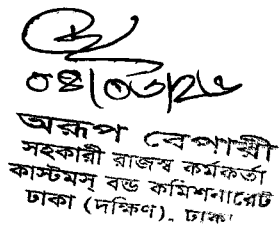 ০৪/০৬/২৪
অরূপ বেপারী
সহকারী রাজস্ব কর্মকর্তা
কাস্টমস্ বন্ড কমিশনারেট
ঢাকা (দক্ষিণ), ঢাকা